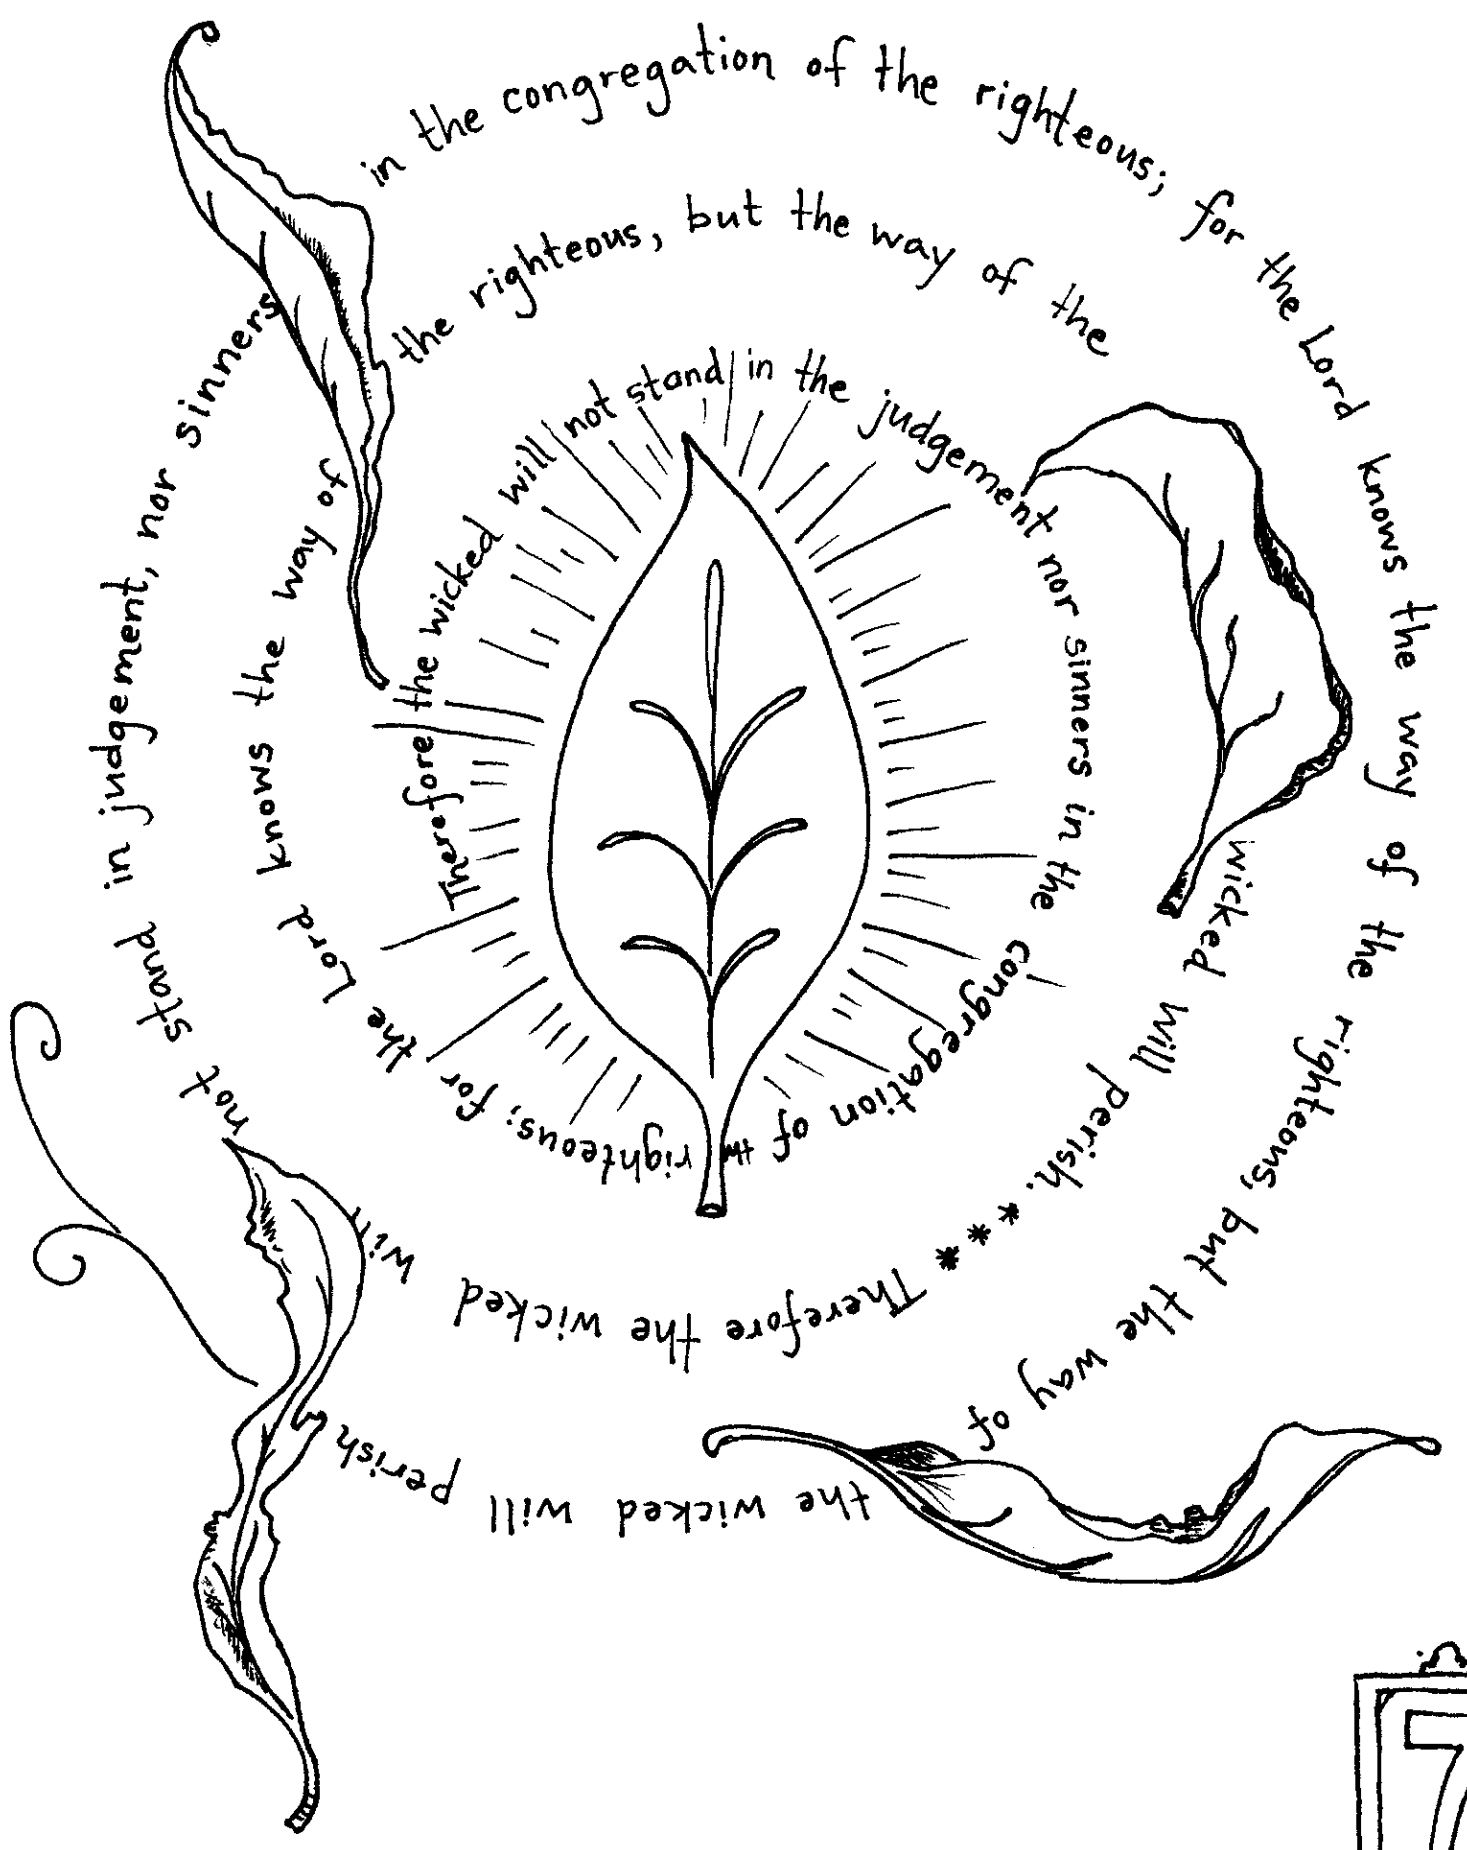 Therefore the wicked will not stand in the judgement nor sinners in the congregation of the righteous; for the Lord knows the way of the righteous, but the way of the wicked will perish. * * * Therefore the wicked will not stand in judgement, nor sinners in the congregation of the righteous; for the Lord knows the way of the righteous, but the way of the wicked will perish
7